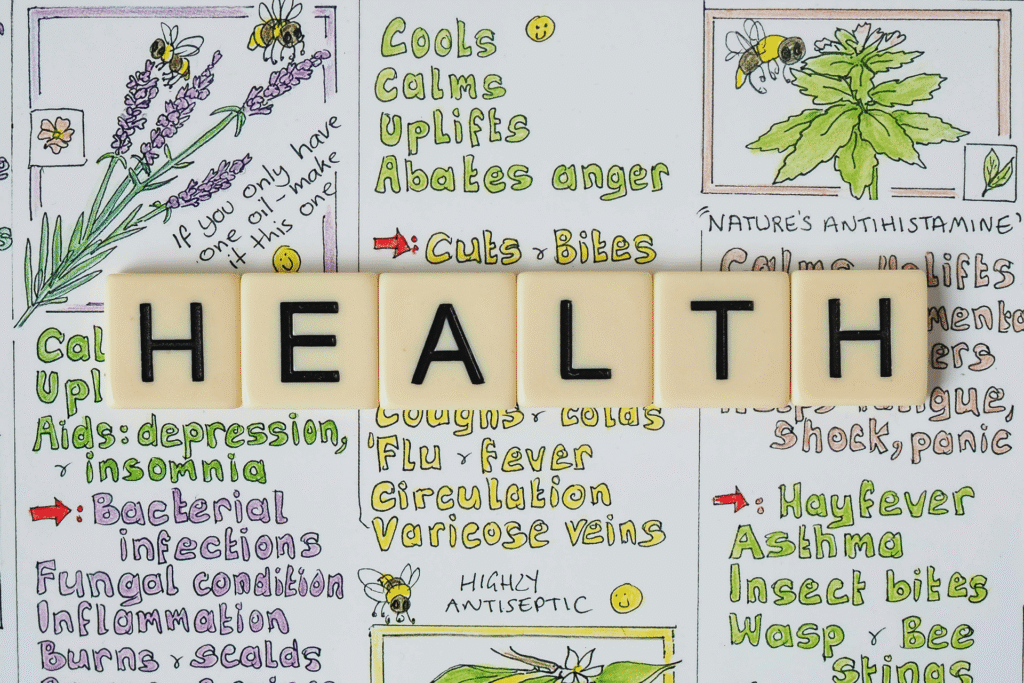 If you only have
one oil - make
it this one
HEALTH
Aids: depression,
& insomnia
: Bacterial
infections
Fungal condition
Inflammation
Burns & scalds
Cools
Calms
Uplifts
Abates anger
: Cuts & Bites
Coughs & colds
'Flu & fever
Circulation
Varicose veins
HIGHLY
ANTISEPTIC
"NATURE'S ANTIHISTAMINE"
Calms Uplifts
shock, panic
: Hayfever
Asthma
Insect bites
Wasp & Bee
stings